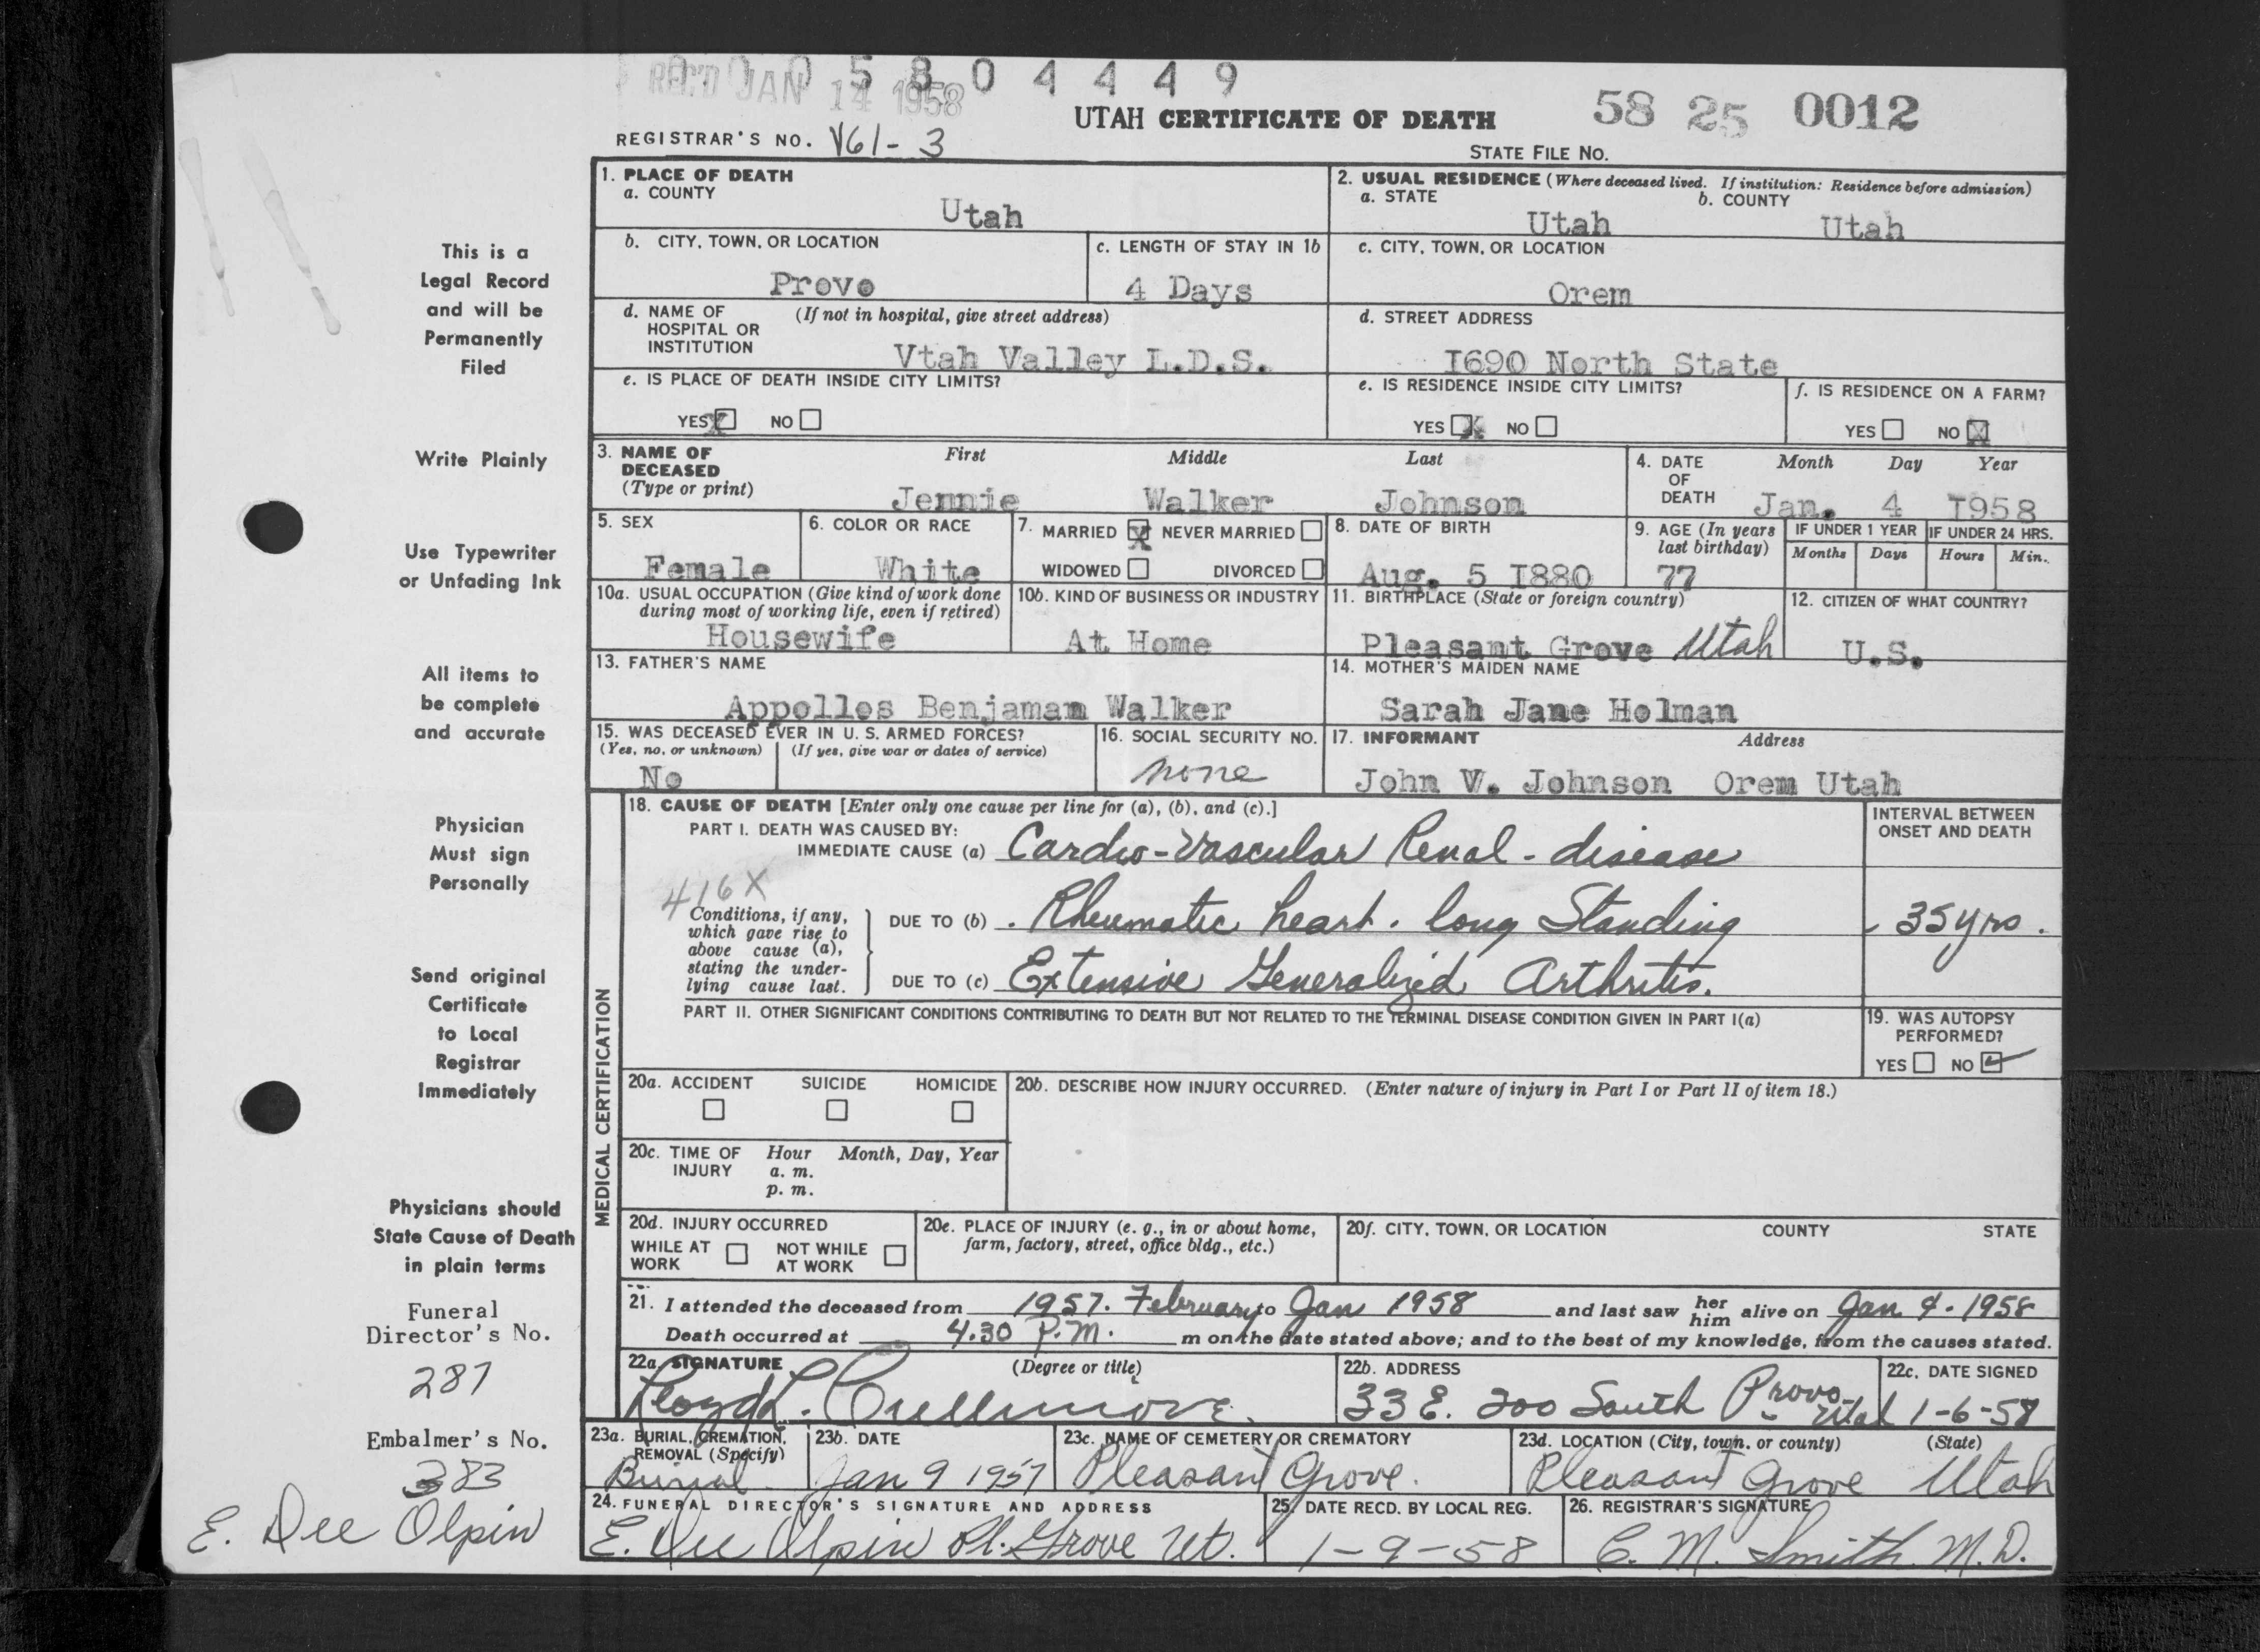 REC'D JAN 14 1958
0 5 8 0 4 4 4 9
UTAH CERTIFICATE OF DEATH
58 25 0012
REGISTRAR'S NO. V61-3
STATE FILE No.
1. PLACE OF DEATH
a. COUNTY
Utah
2. USUAL RESIDENCE (Where deceased lived. If institution: Residence before admission)
a. STATE b. COUNTY
Utah Utah
b. CITY, TOWN, OR LOCATION
Provo
c. LENGTH OF STAY IN 1b
4 Days
c. CITY, TOWN, OR LOCATION
Orem
d. NAME OF (If not in hospital, give street address)
HOSPITAL OR
INSTITUTION
Vtah Valley L.D.S.
d. STREET ADDRESS
I690 North State
e. IS PLACE OF DEATH INSIDE CITY LIMITS?
YES X NO
e. IS RESIDENCE INSIDE CITY LIMITS?
YES X NO
f. IS RESIDENCE ON A FARM?
YES NO X
3. NAME OF DECEASED (Type or print)
First Middle Last
Jennie Walker Johnson
4. DATE OF DEATH
Month Day Year
Jan. 4 I958
5. SEX
Female
6. COLOR OR RACE
White
7. MARRIED X NEVER MARRIED
WIDOWED DIVORCED
8. DATE OF BIRTH
Aug. 5 I880
9. AGE (In years last birthday)
77
IF UNDER 1 YEAR
Months Days
IF UNDER 24 HRS.
Hours Min.
10a. USUAL OCCUPATION (Give kind of work done
during most of working life, even if retired)
Housewife
10b. KIND OF BUSINESS OR INDUSTRY
At Home
11. BIRTHPLACE (State or foreign country)
Pleasant Grove Utah
12. CITIZEN OF WHAT COUNTRY?
U.S.
13. FATHER'S NAME
Appollos Benjaman Walker
14. MOTHER'S MAIDEN NAME
Sarah Jane Holman
15. WAS DECEASED EVER IN U. S. ARMED FORCES?
(Yes, no, or unknown) (If yes, give war or dates of service)
No
16. SOCIAL SECURITY NO.
none
17. INFORMANT Address
John V. Johnson Orem Utah
MEDICAL CERTIFICATION
18. CAUSE OF DEATH [Enter only one cause per line for (a), (b), and (c).]
INTERVAL BETWEEN
ONSET AND DEATH
PART I. DEATH WAS CAUSED BY:
IMMEDIATE CAUSE (a) Cardio-Vascular Renal - disease
416X
Conditions, if any,
which gave rise to
above cause (a),
stating the under-
lying cause last.
DUE TO (b) . Rheumatic heart. long Standing
- 35 yrs.
DUE TO (c) Extensive Generalized Arthritis.
PART II. OTHER SIGNIFICANT CONDITIONS CONTRIBUTING TO DEATH BUT NOT RELATED TO THE TERMINAL DISEASE CONDITION GIVEN IN PART I(a)
19. WAS AUTOPSY
PERFORMED?
YES NO ✓
20a. ACCIDENT SUICIDE HOMICIDE
20b. DESCRIBE HOW INJURY OCCURRED. (Enter nature of injury in Part I or Part II of item 18.)
20c. TIME OF INJURY
Hour Month, Day, Year
a. m.
p. m.
20d. INJURY OCCURRED
WHILE AT WORK NOT WHILE AT WORK
20e. PLACE OF INJURY (e. g., in or about home,
farm, factory, street, office bldg., etc.)
20f. CITY, TOWN, OR LOCATION COUNTY STATE
21. I attended the deceased from 1957. February to Jan 1958 and last saw her him alive on Jan 4. 1958
Death occurred at 4.30 P.M. m on the date stated above; and to the best of my knowledge, from the causes stated.
22a. SIGNATURE (Degree or title)
Lloyd L. Cullimore.
22b. ADDRESS
33 E. 200 South Provo Utah
22c. DATE SIGNED
1-6-58
23a. BURIAL, CREMATION,
REMOVAL (Specify)
Burial
23b. DATE
Jan 9 1957
23c. NAME OF CEMETERY OR CREMATORY
Pleasant Grove.
23d. LOCATION (City, town, or county) (State)
Pleasant Grove Utah
24. FUNERAL DIRECTOR'S SIGNATURE AND ADDRESS
E. Dee Olpin Pl. Grove Ut.
25. DATE RECD. BY LOCAL REG.
1-9-58
26. REGISTRAR'S SIGNATURE
C. M. Smith M.D.
This is a
Legal Record
and will be
Permanently
Filed
Write Plainly
Use Typewriter
or Unfading Ink
All items to
be complete
and accurate
Physician
Must sign
Personally
Send original
Certificate
to Local
Registrar
Immediately
Physicians should
State Cause of Death
in plain terms
Funeral
Director's No.
287
Embalmer's No.
383
E. Dee Olpin